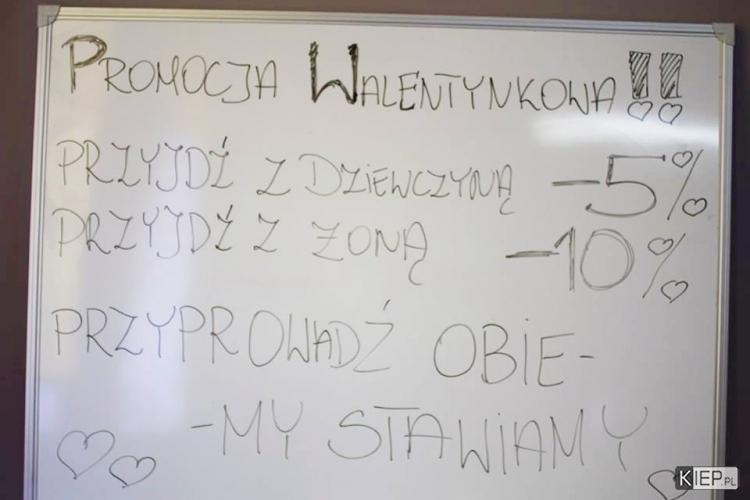 PROMOCJA WALENTYNKOWA!!
PRZYJDŹ Z DZIEWCZYNĄ -5%
PRZYJDŹ Z ŻONĄ -10%
PRZYPROWADŹ OBIE-
-MY STAWIAMY
KIEP.PL